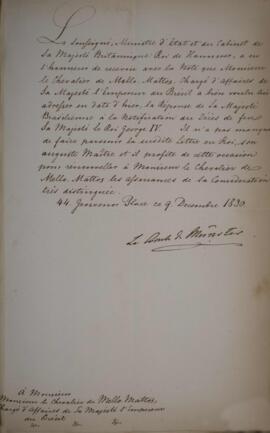 Le Soussigné, Ministre d'Etat et du Cabinet de
Sa Majesté Britannique Roi de Hannovre, a eu
l'honneur de recevoir avec la Note que Monsieur
le Chevalier de Mello Mattos, Chargé d'Affaires de
Sa Majesté l'Empereur du Brésil a bien voulu lui
adresser en date d'hier, la Réponse de Sa Majesté
Brasilienne à la Notification du Décès de feu
Sa Majesté le Roi George IV. Il n'a pas manqué
de faire parvenir la susdite Lettre au Roi, son
auguste Maître et il profite de cette occasion
pour renouveller à Monsieur le Chevalier de
Mello Mattos, les assurances de sa Considération
très distinguée.
44. Grosvenor Place ce 9 Decembre 1830.
Le Comte de Münster
À Monsieur
Monsieur le Chevalier de Mello Mattos,
Chargé d'Affaires de Sa Majesté l'Empereur
du Brésil